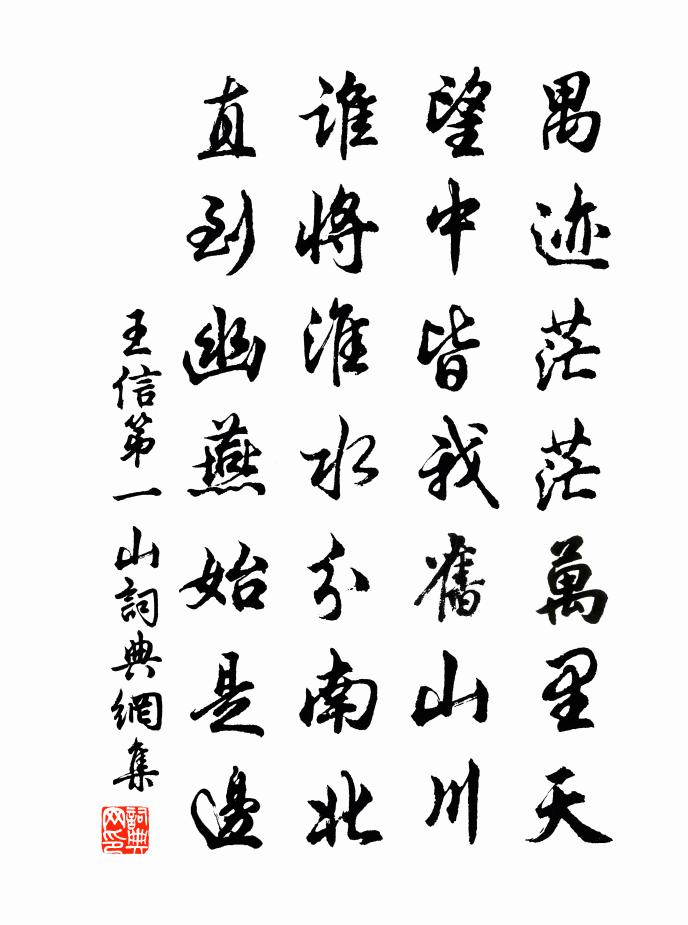 禺迹茫茫萬里天
望中皆我舊山川
誰將淮水分南北
直到幽燕始是邊
王信第一山詞典網集
詞典網印